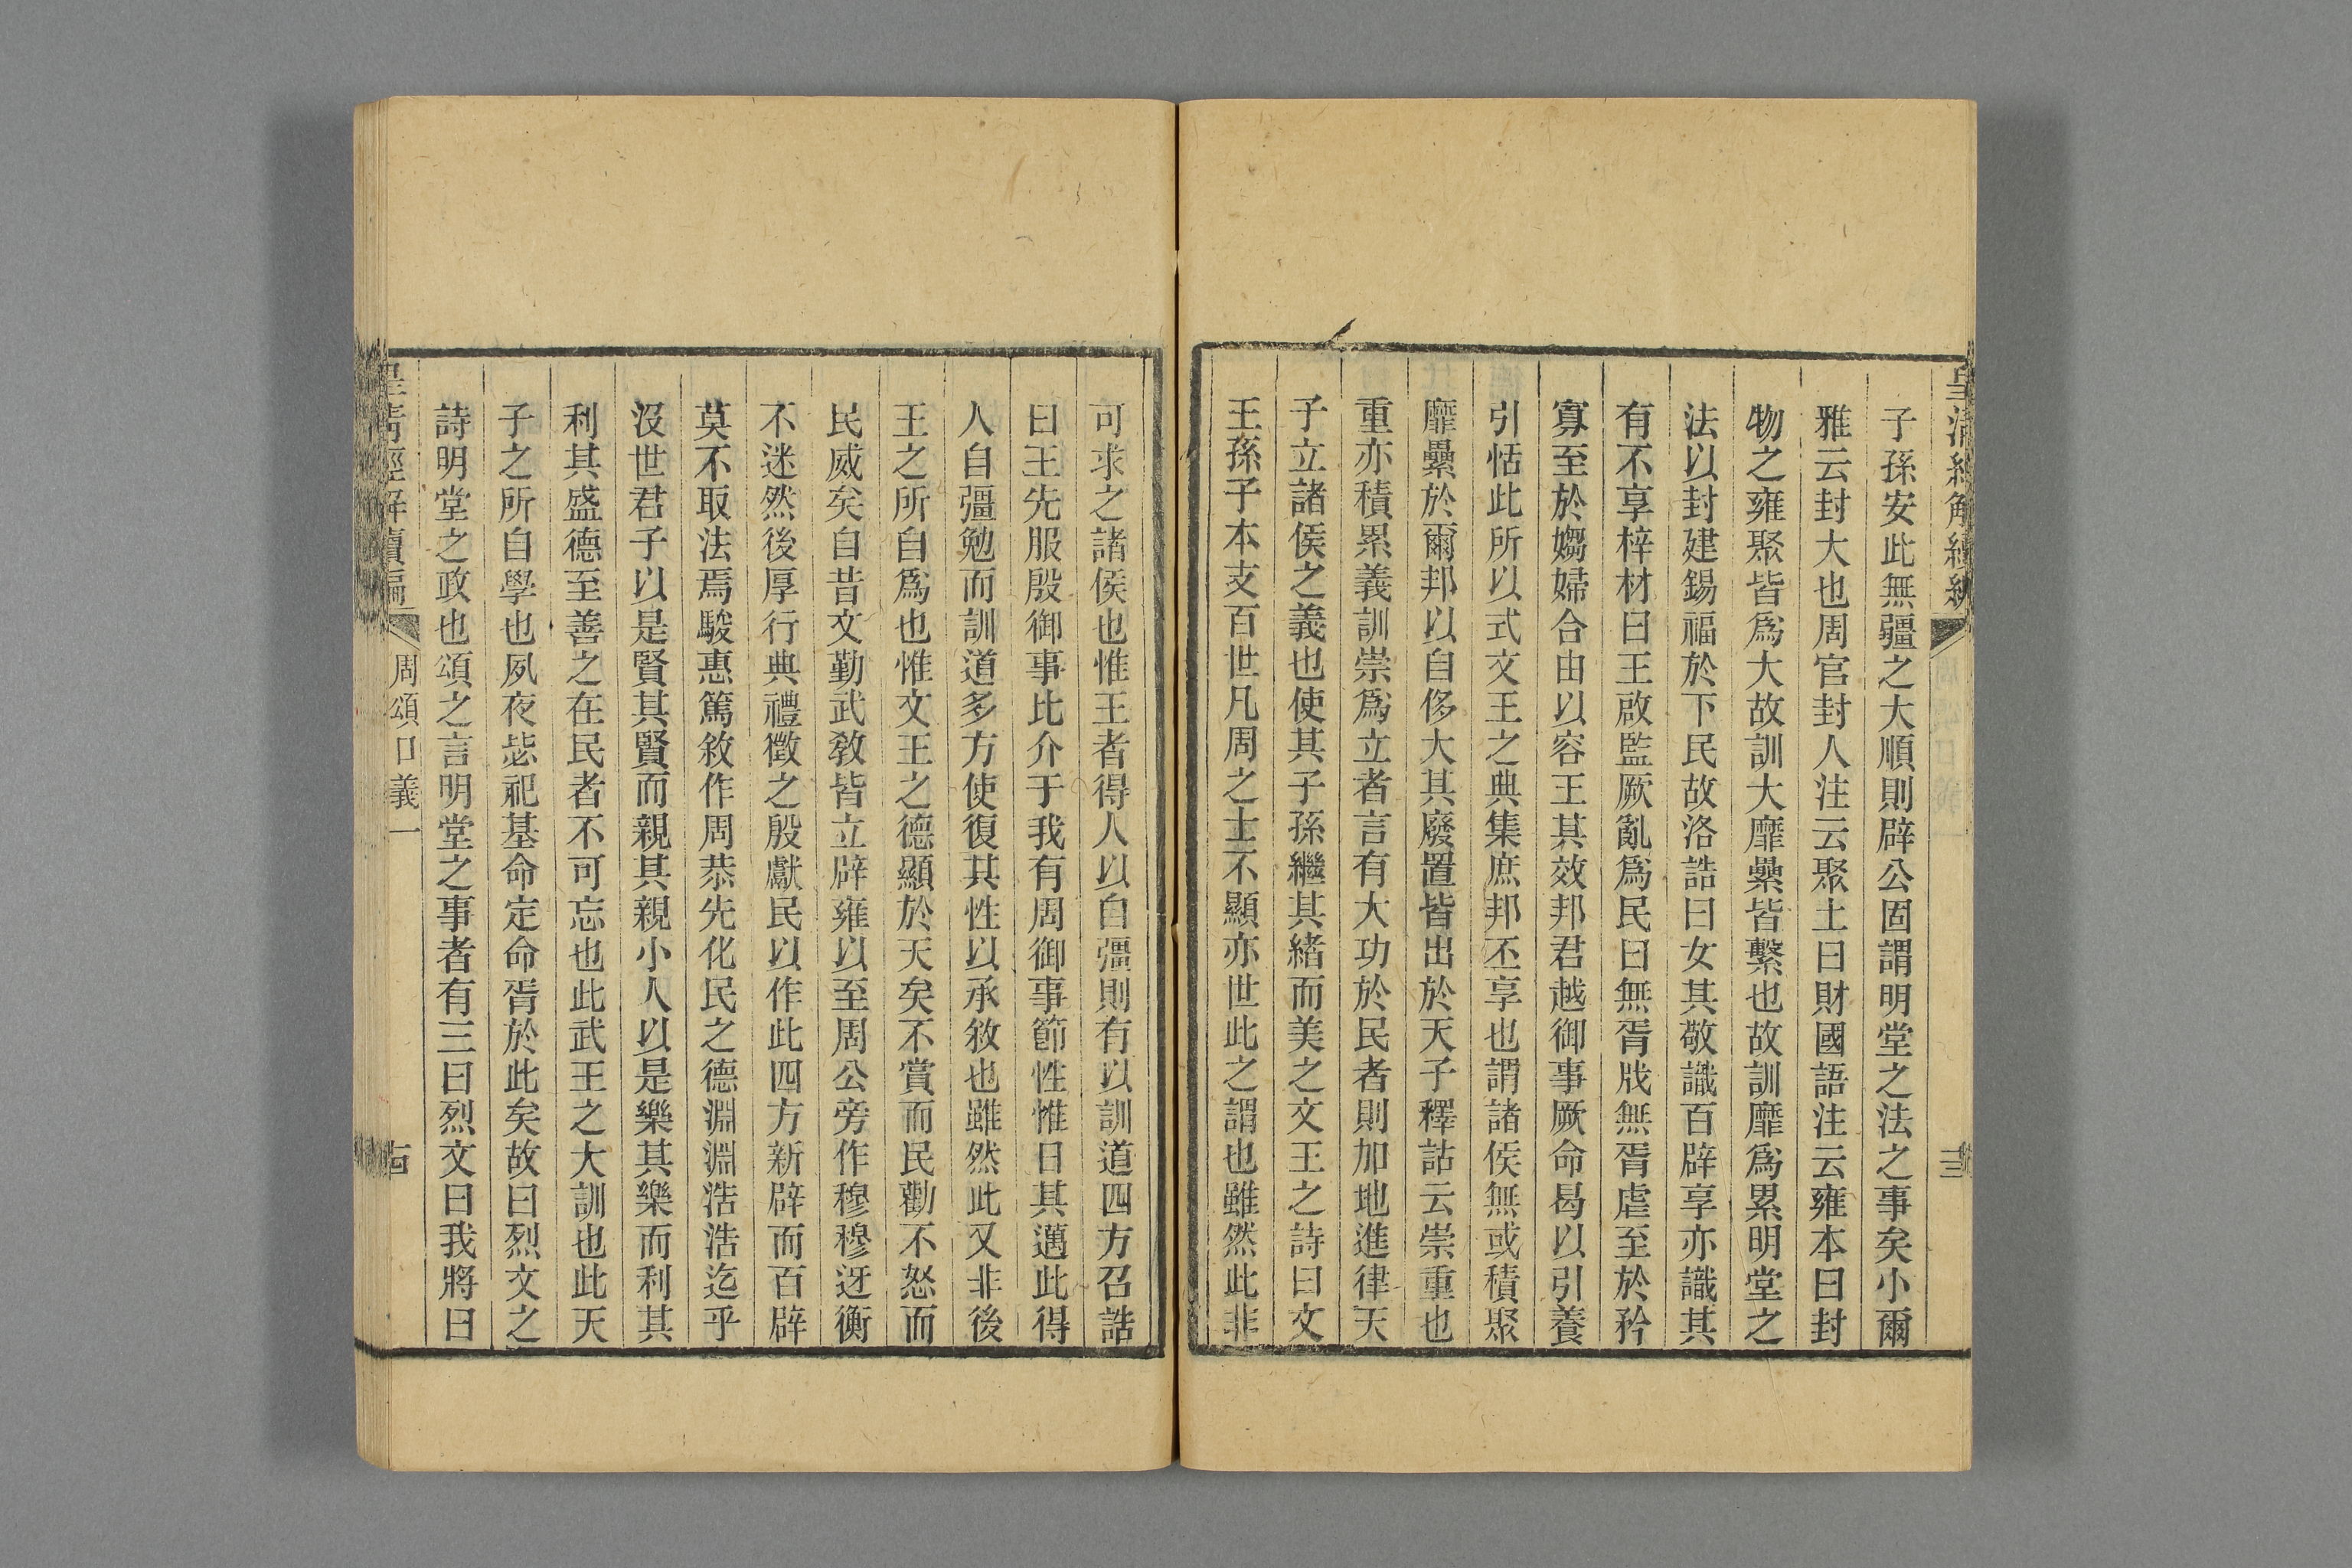 皇清經解續編
子孫安此無疆之大順則辟公固謂明堂之法之事矣小爾
雅云封大也周官封人注云聚土曰封國語注云雍本曰封
物之雍聚皆爲大故訓大靡纍皆繫也故訓靡爲累明堂之
法以封建錫福於下民故洛誥曰女其敬識百辟享亦識其
有不享梓材曰王啟監厥亂爲民曰無胥戕無胥虐至於矜
寡至於媰婦合由以容王其效邦君越御事厥命曷以引養
引恬此所以式文王之典集庶邦丕享也謂諸侯無或積聚
靡纍於爾邦以自侈大其廢置皆出於天子釋詁云崇重也
重亦積累義訓崇爲立者言有大功於民者則加地進律天
子立諸侯之義也使其子孫繼其緒而美之文王之詩曰文
王孫子本支百世凡周之士不顯亦世此之謂也雖然此非
可求之諸侯也惟王者得人以自彊則有以訓道四方召誥
曰王先服殷御事比介于我有周御事節性惟日其邁此得
人自彊勉而訓道多方使復其性以承敘也雖然此又非後
王之所自爲也惟文王之德顯於天矣不賞而民勸不怒而
民威矣自昔文勤武教皆立辟雍以至周公旁作穆穆迓衡
不迷然後厚行典禮徵之殷獻民以作此四方新辟而百辟
莫不取法焉駿惠篤敘作周恭先化民之德淵淵浩浩迄乎
沒世君子以是賢其賢而親其親小人以是樂其樂而利其
利其盛德至善之在民者不可忘也此武王之大訓也此天
子之所自學也夙夜毖祀基命定命胥於此矣故曰烈文之
詩明堂之政也頌之言明堂之事者有三曰烈文曰我將曰
皇清經解續編
周頌口義一